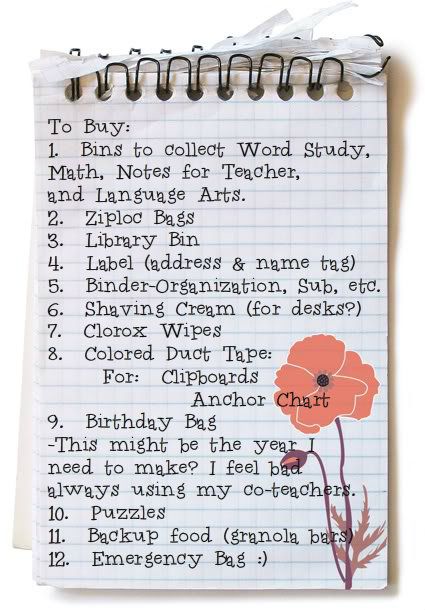 To Buy:
1. Bins to collect Word Study,
Math, Notes for Teacher,
and Language Arts.
2. Ziploc Bags
3. Library Bin
4. Label (address & name tag)
5. Binder-Organization, Sub, etc.
6. Shaving Cream (for desks?)
7. Clorox Wipes
8. Colored Duct Tape:
For: Clipboards
Anchor Chart
9. Birthday Bag
-This might be the year I
need to make? I feel bad
always using my co-teachers.
10. Puzzles
11. Backup food (granola bars)
12. Emergency Bag :)